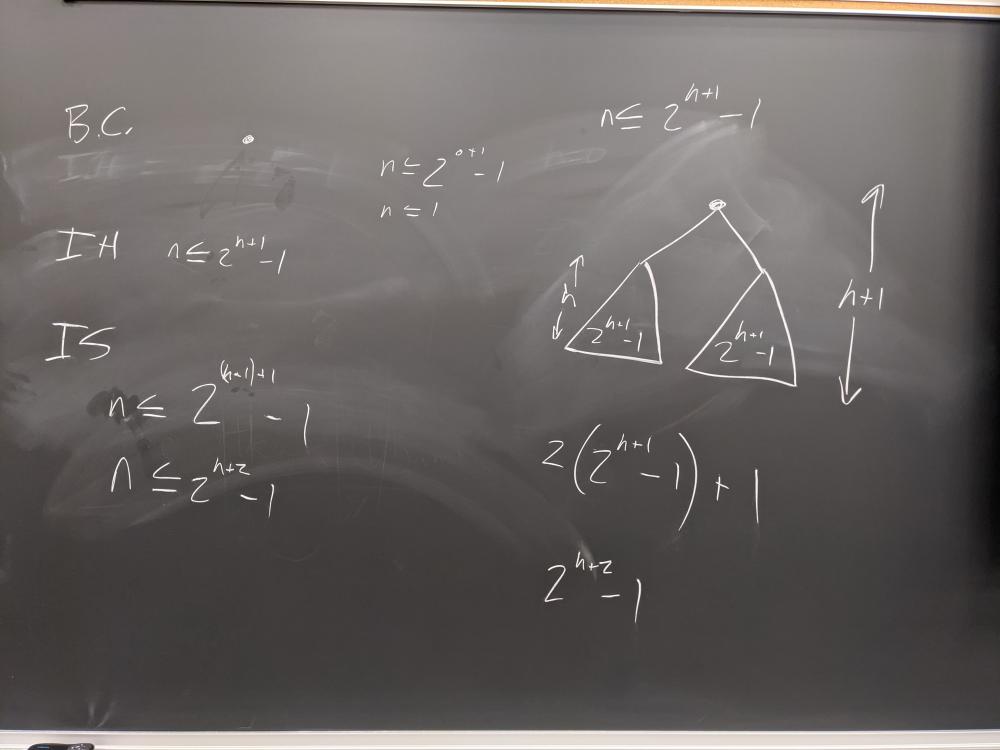 B.C.
n ≤ 2^{0+1} - 1
n ≤ 1
IH n ≤ 2^{h+1} - 1
IS
n ≤ 2^{(h+1)+1} - 1
n ≤ 2^{h+2} - 1
n ≤ 2^{h+1} - 1
h
2^{h+1} - 1
2^{h+1} - 1
h+1
2(2^{h+1} - 1) + 1
2^{h+2} - 1